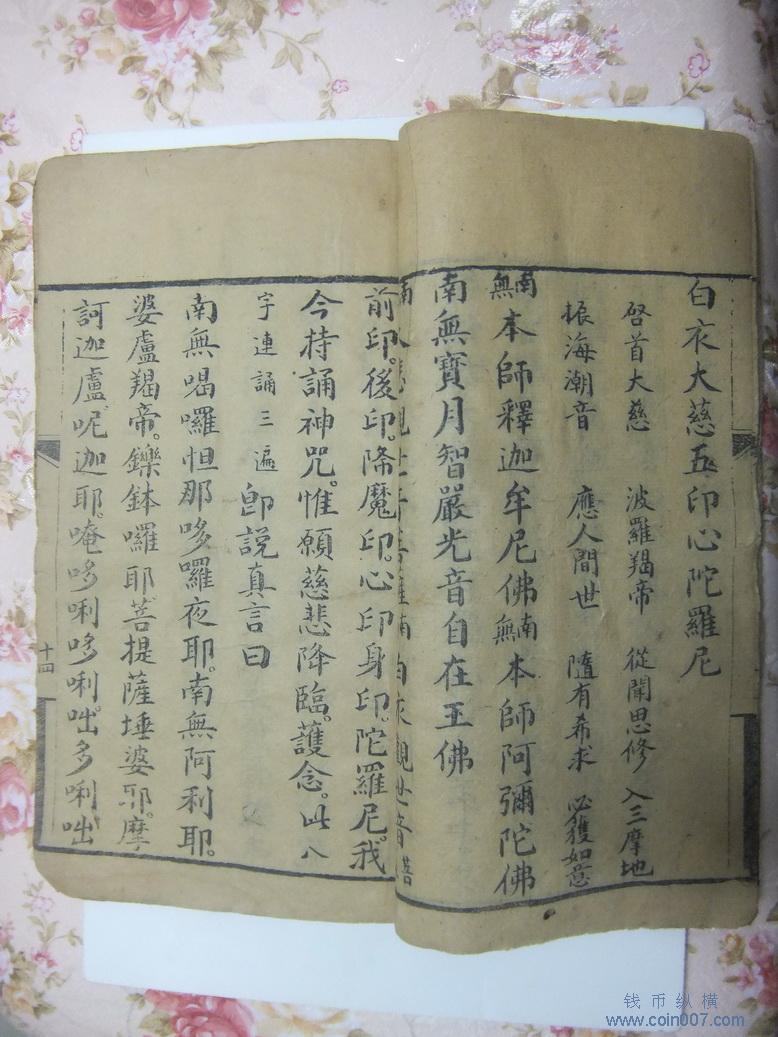 白衣大慈五印心陀羅尼
啓首大慈 波羅羯帝 從聞思修 入三摩地
振海潮音 應人間世 隨有希求 必獲如意
南無本師釋迦牟尼佛南無本師阿彌陀佛
南無寶月智嚴光音自在王佛
白衣觀世音菩
前印。後印。降魔印。心印身印。陀羅尼。我
今持誦神咒。惟願慈悲降臨。護念。此八
字連誦三遍 卽說真言曰
南無喝囉怛那哆囉夜耶。南無阿利耶。
婆盧羯帝。鑠鉢囉耶菩提薩埵婆耶。摩
訶迦盧呢迦耶。唵哆唎哆唎咄多唎咄
十四
钱币纵横
www.coin007.com